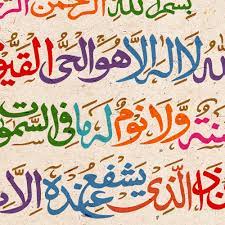 بسم الله الرحمن الر
لله لا إله إلا هو الحي القيو
سنة ولا نوم له ما في السموت
من ذا الذي يشفع عنده إلا